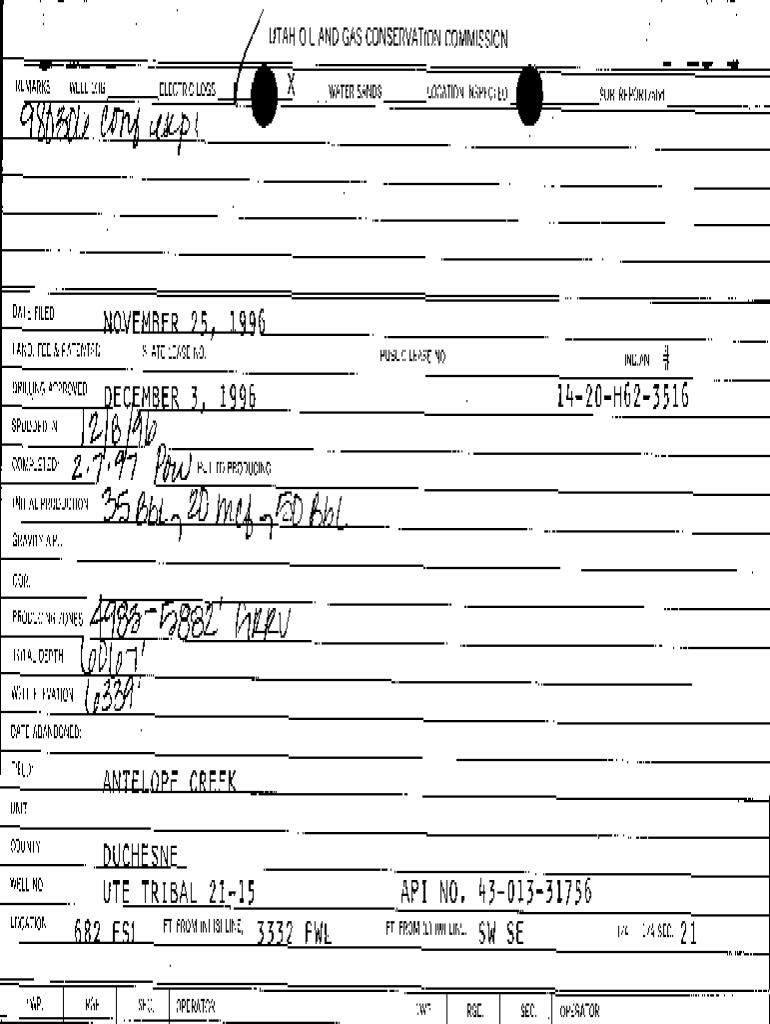 UTAH OIL AND GAS CONSERVATION COMMISSION
REMARKS WELL LOG ELECTRIC LOGS X WATER SANDS LOCATION INSPECTED SUB REPORT/abd
980306 Conf expi
DATE FILED NOVEMBER 25, 1996
LAND: FEE & PATENTED STATE LEASE NO. PUBLIC LEASE NO INDIAN #
DRILLING APPROVED DECEMBER 3, 1996 14-20-H62-3516
SPUDDED IN 12/8/96
COMPLETED: 2.7.97 POW PUT TO PRODUCING
INITIAL PRODUCTION 35 BbL, 20 mcf, 50 BbL
GRAVITY A.P.I.
GOR:
PRODUCING ZONES 4983-5882' GRRV
TOTAL DEPTH 6067'
WELL ELEVATION 6339'
DATE ABANDONED:
FIELD: ANTELOPE CREEK
UNIT
COUNTY DUCHESNE
WELL NO UTE TRIBAL 21-15 API NO. 43-013-31756
LOCATION 682 FSL FT FROM (N) (S) LINE, 3332 FWL FT FROM (E) (W) LINE. SW SE 1/4 1/4 SEC. 21
TWP. RGE SEC. OPERATOR TWP RGE. SEC. OPERATOR